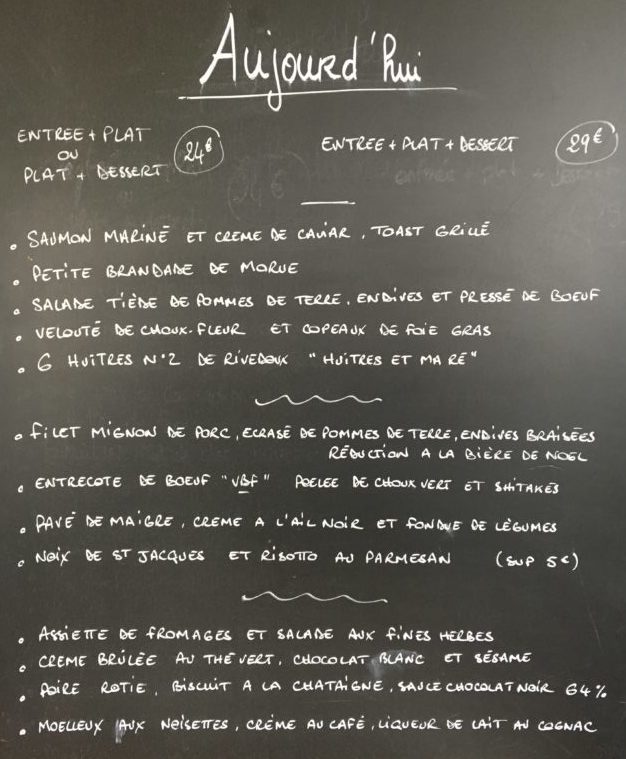 Aujourd'hui
ENTREE + PLAT
OU
PLAT + DESSERT
24€
ENTREE + PLAT + DESSERT
29€
• SAUMON MARINÉ ET CREME DE CAVIAR, TOAST GRILLÉ
• PETITE BRANDADE DE MORUE
• SALADE TIÈDE DE POMMES DE TERRE, ENDIVES ET PRESSÉ DE BOEUF
• VELOUTÉ DE CHOUX-FLEUR ET COPEAUX DE FOIE GRAS
• 6 HUÎTRES N°2 DE RIVEDOUX "HUÎTRES ET MA RÉ"
• FILET MIGNON DE PORC, ECRASÉ DE POMMES DE TERRE, ENDIVES BRAISÉES
RÉDUCTION A LA BIÈRE DE NOEL
• ENTRECOTE DE BOEUF "VBF" POELEE DE CHOUX VERT ET SHITAKÉS
• PAVÉ DE MAIGRE, CREME A L'AIL NOIR ET FONDUE DE LÉGUMES
• NOIX DE ST JACQUES ET RISOTTO AU PARMESAN (SUP 5€)
• ASSIETTE DE FROMAGES ET SALADE AUX FINES HERBES
• CREME BRÛLÉE AU THÉ VERT, CHOCOLAT BLANC ET SÉSAME
• POIRE ROTIE, BISCUIT A LA CHATAIGNE, SAUCE CHOCOLAT NOIR 64%
• MOELLEUX AUX NOISETTES, CRÈME AU CAFÉ, LIQUEUR DE LAIT AU COGNAC